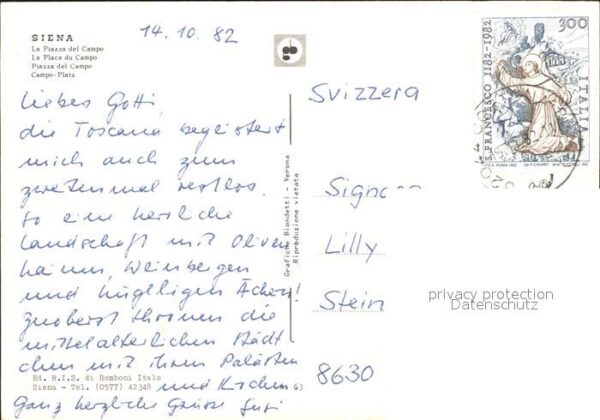 14.10.82
SIENA
La Piazza del Campo
La Place du Campo
Piazza del Campo
Campo-Platz
Liebes Gotti,
die Toscana begeistert
mich auch zum
zweitenmal restlos.
so eine herrliche
Landschaft mit Oliven
hainen, Weinbergen
und hügeligen Äckern!
zuoberst thronen die
mittelalterlichen Städt
chen mit ihren Palästen
und Kirchen
Ganz herzliche Grüsse
Ed. R.I.S. di Romboni Italo
Siena - Tel. (0577) 42348
63
Grafiche Biondetti - Verona
Riproduzione vietata
Svizzera
Signora
Lilly
Stein
8630
300
ITALIA
S. FRANCESCO 1182-1982
privacy protection
Datenschutz